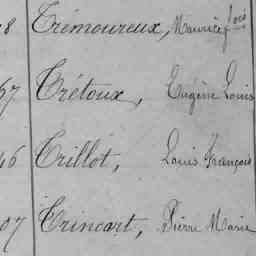 8 Trémoureux, Maurice fois
67 Trétoux, Eugène Louis
46 Trillot, Louis François
07 Trincart, Pierre Marie